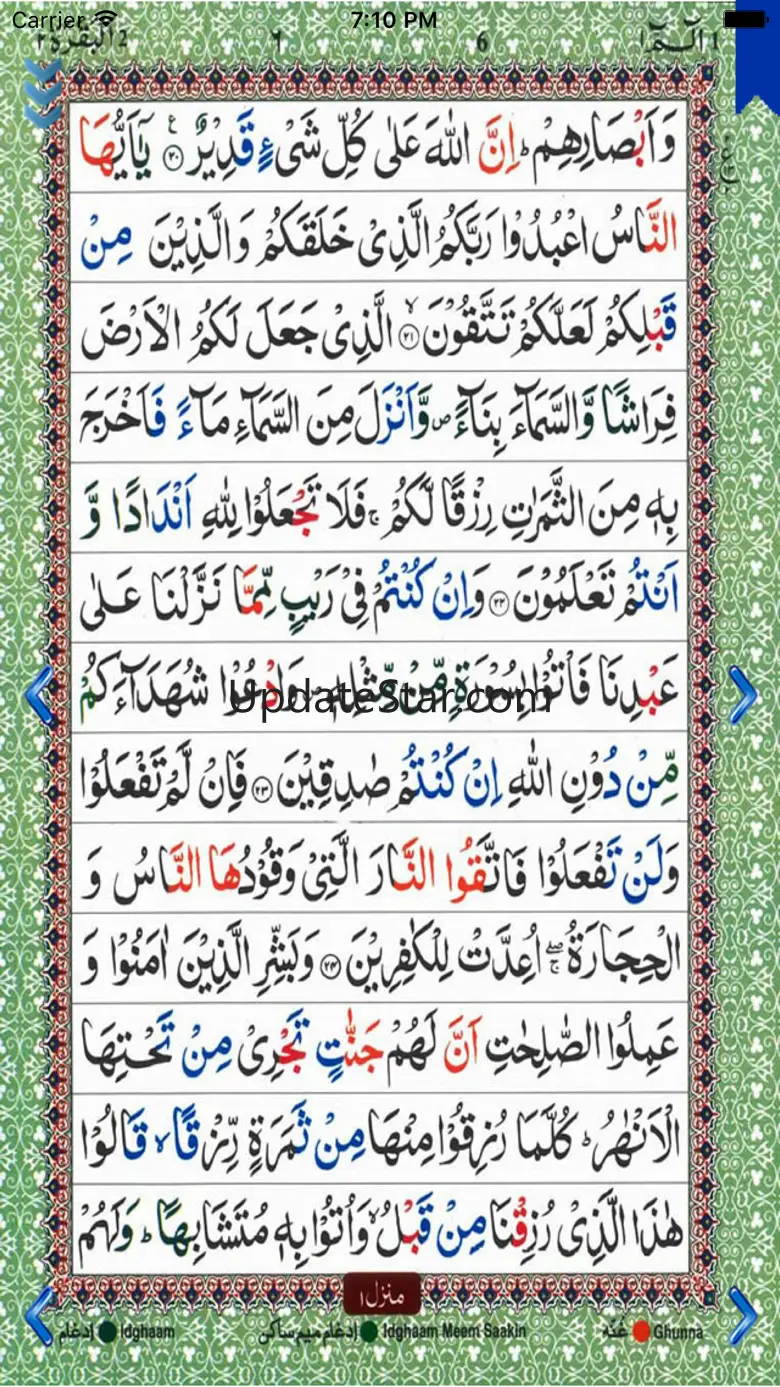 Carrier 7:10 PM
البقرة ٢ 2 ٦ 6 الٓمّٓ ١ 1
وَاَبْصَارِهِمْ ؕ اِنَّ اللّٰهَ عَلٰى كُلِّ شَیْءٍ قَدِیْرٌ ﴿۲۰﴾ یٰۤاَیُّهَا
النَّاسُ اعْبُدُوْا رَبَّكُمُ الَّذِیْ خَلَقَكُمْ وَالَّذِیْنَ مِنْ
قَبْلِكُمْ لَعَلَّكُمْ تَتَّقُوْنَ ﴿۲۱﴾ ۙ الَّذِیْ جَعَلَ لَكُمُ الْاَرْضَ
فِرَاشًا وَّالسَّمَآءَ بِنَآءً ۪ وَّاَنْزَلَ مِنَ السَّمَآءِ مَآءً فَاَخْرَجَ
بِهٖ مِنَ الثَّمَرٰتِ رِزْقًا لَّكُمْ ۚ فَلَا تَجْعَلُوْا لِلّٰهِ اَنْدَادًا وَّ
اَنْتُمْ تَعْلَمُوْنَ ﴿۲۲﴾ وَاِنْ كُنْتُمْ فِیْ رَیْبٍ مِّمَّا نَزَّلْنَا عَلٰى
عَبْدِنَا فَاْتُوْا بِسُوْرَةٍ مِّنْ مِّثْلِهٖ ۪ وَادْعُوْا شُهَدَآءَكُمْ
UpdateStar.com
مِّنْ دُوْنِ اللّٰهِ اِنْ كُنْتُمْ صٰدِقِیْنَ ﴿۲۳﴾ فَاِنْ لَّمْ تَفْعَلُوْا
وَلَنْ تَفْعَلُوْا فَاتَّقُوا النَّارَ الَّتِیْ وَقُوْدُهَا النَّاسُ وَ
الْحِجَارَةُ ۖۚ اُعِدَّتْ لِلْكٰفِرِیْنَ ﴿۲۴﴾ وَبَشِّرِ الَّذِیْنَ اٰمَنُوْا وَ
عَمِلُوا الصّٰلِحٰتِ اَنَّ لَهُمْ جَنّٰتٍ تَجْرِیْ مِنْ تَحْتِهَا
الْاَنْهٰرُ ؕ كُلَّمَا رُزِقُوْا مِنْهَا مِنْ ثَمَرَةٍ رِّزْقًا ۙ قَالُوْا
هٰذَا الَّذِیْ رُزِقْنَا مِنْ قَبْلُ ۙ وَاُتُوْا بِهٖ مُتَشَابِهًا ؕ وَلَهُمْ
منزل ١
إدغام Idghaam إدغام ميم ساكن Idghaam Meem Saakin غنّه Ghunna